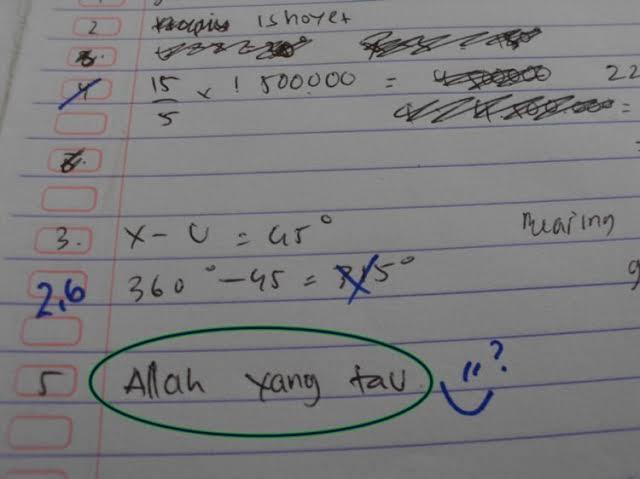 2 ishoyet
4 15/5 x 1 500000 = 22
3. X - U = 45° Bearing
2,6 360° - 45 = 315° 9
5 Allah yang tau ?